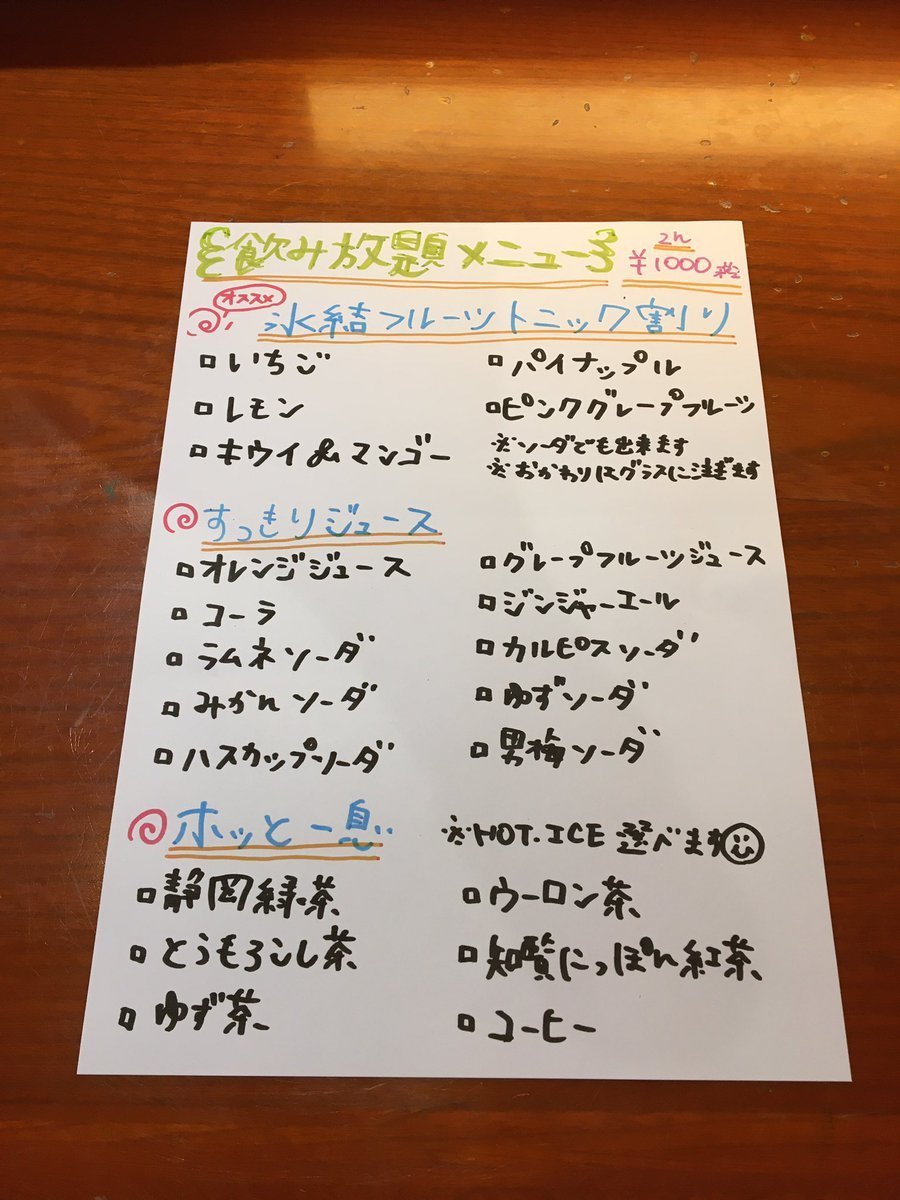 飲み放題メニュー
2h
¥1000税込
オススメ
氷結フルーツトニック割り
いちご
パイナップル
レモン
ピンクグレープフルーツ
キウイ&マンゴー
※ソーダでも出来ます
※おかわりはグラスに注ぎます
すっきりジュース
オレンジジュース
グレープフルーツジュース
コーラ
ジンジャーエール
ラムネソーダ
カルピスソーダ
みかんソーダ
ゆずソーダ
ハスカップソーダ
男梅ソーダ
ホッと一息
※HOT.ICE 選べます
静岡緑茶
ウーロン茶
とうもろこし茶
知覧にっぽん紅茶
ゆず茶
コーヒー